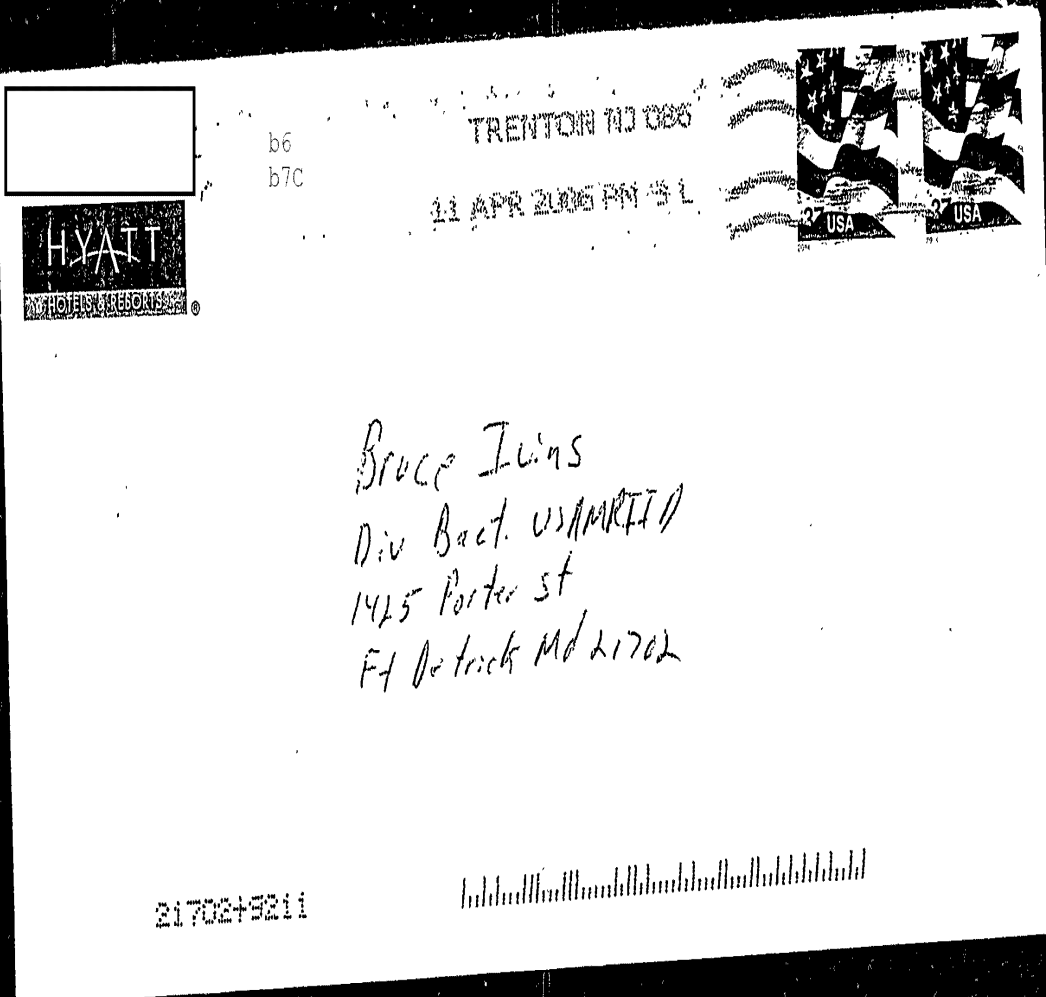 b6
b7C
TRENTON NJ 086
11 APR 2006 PM 9 L
37 USA
37 USA
HYATT
HOTELS & RESORTS®
Bruce Ivins
Div Bact. USAMRIID
1425 Porter St
Ft Detrick Md 21702
21702+9211